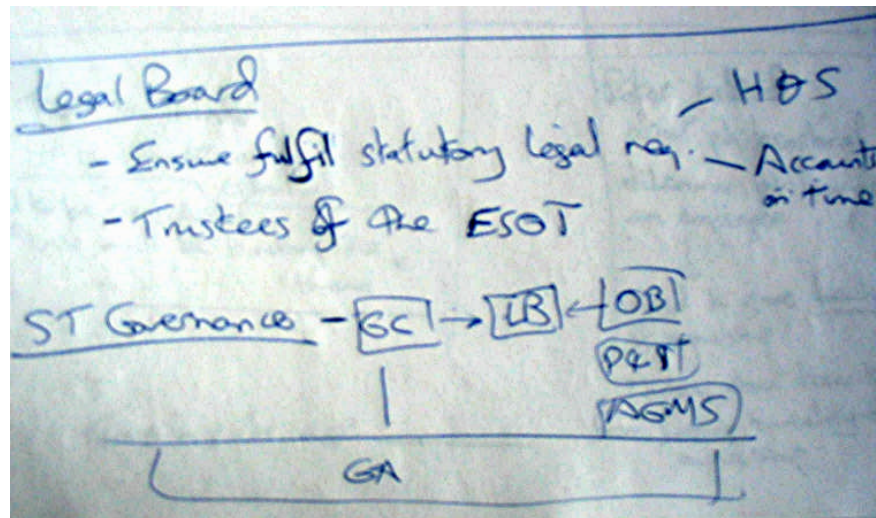 Legal Board
- Ensure fulfil statutory legal req. - H&S
- Accounts on time
- Trustees of the ESOT
ST Governance - GC → LB ← OB
AGMS
GA